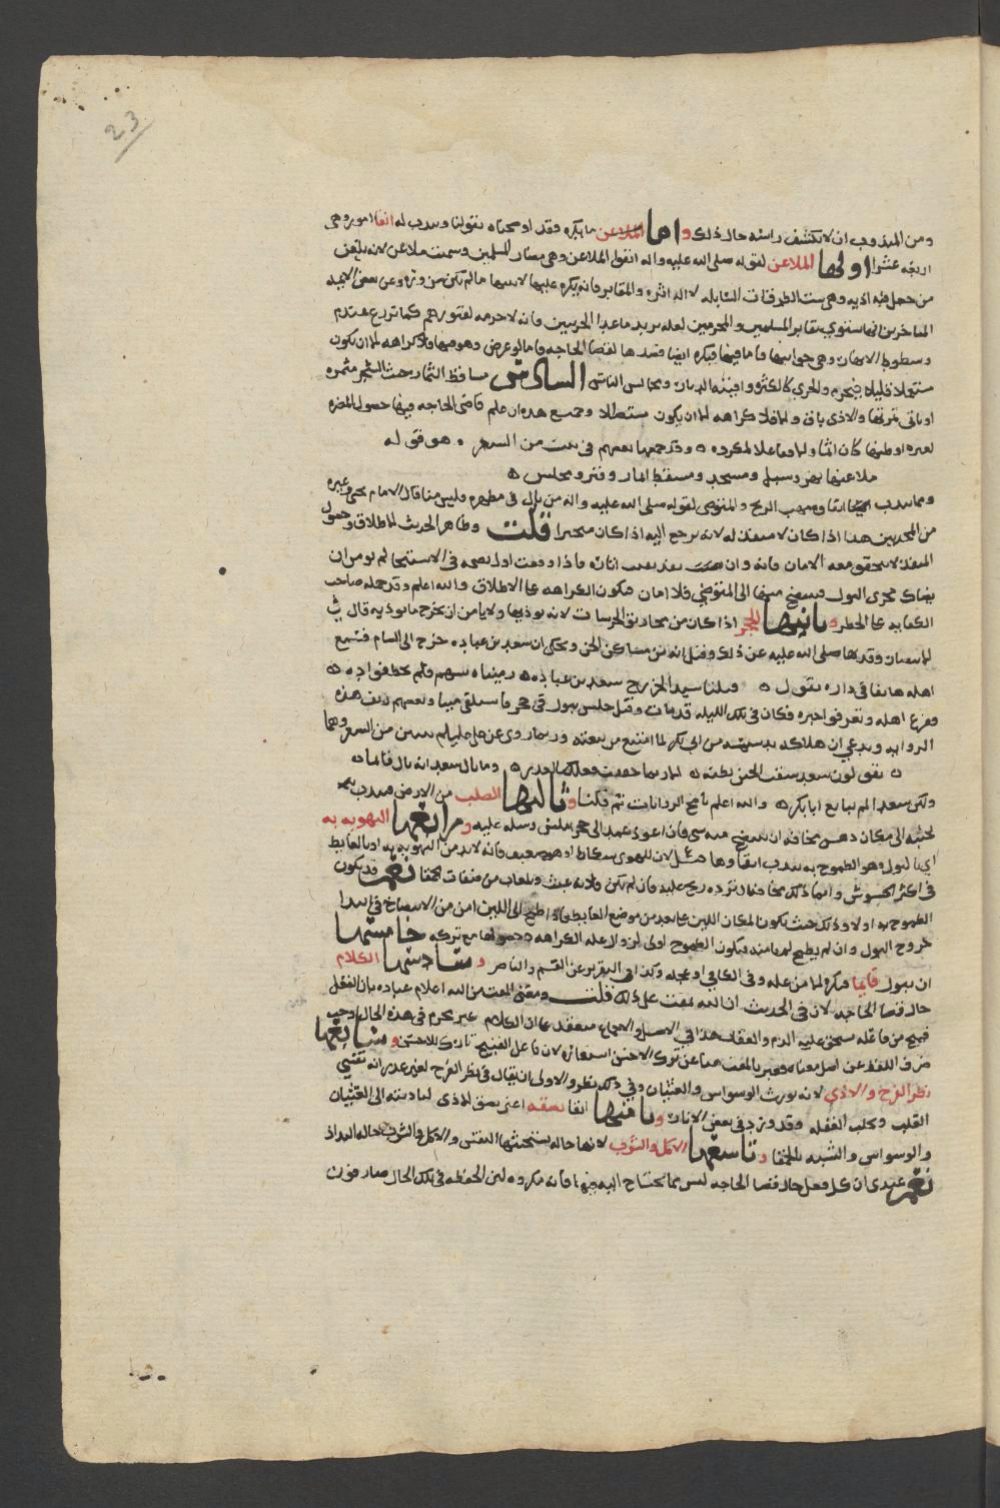 23
ومن المندوب ان لا يكشف راسه حال ذلك واما ما يكره وقد اوضحناه بقولنا وندب له اتقا امور وهي
اربعة عشر اولها الملاعن لقوله صلى الله عليه واله اتقوا الملاعن وهي مضار المسلمين وسميت ملاعن لانه يلعن
من جعل فيه اذيه وهي ست الطرقات السابله والمقابر فانه يكره عليها لا سيما ما لم تكن من وعن بعض الايمه
المتاخرين انها يستوي مقابر المسلمين و المجرمين لعله يريد ما عدا الحربيين فانه لا حرمه لقبورهم كما
وسطوط الانهار وهي جوانبها فاما فيها فيكره ايضا قصدها لقضا الحاجه فاما لو عرض وهو فيها فلا كراهه الا ان يكون
مستعملا قليلا فيحرم والمجرى كالكثير وافنيه الديار ومجالس الناس السادس مساقط الثمار تحت الشجر مثمره
او باقي ثمرتها والاذى باق والا فلا كراهه الا ان يكون مستظلا وجميع هذه ان علم قاضي الحاجه فيها حصول المضره
لغيره او ظنها كان اثما والا فاعلا لمكروه وقد جمعها بعضهم في بيت من الشعر هو قوله
ملاعنها نهر وسبل ومسجد ومسقط اثمار وقبر ومجلس
ومما يندب ايضا اتقاوه مهب الريح والمتوضى لقوله صلى الله عليه واله من بال في مطهره وليس منا قال الامام يحيى وغيره
من المجتهدين هذا اذا كان لا منفذ له لانه يرجع اليه اذا كان منحبرا قلت وظاهر الحديث الاطلاق وحصول
المنفذ لا يتحقق معه الامان فانه وان اثاره فاذا وقعت اول نضحه في الاستنجا لم يومن ان
هناك مجرى البول فينضح منها الى المتوضي فلا امان فيكون الكراهه على الاطلاق والله اعلم وقد حمله صاحب
الكفايه على الحظر وثانيها الجحر اذا كان من مخارق الحرسات لانه يوذيها ولا يامن ان يخرج ما يوذيه قال في
الانتصار وقد نها صلى الله عليه عن ذلك وقيل انه من مساكن الجن ويحكى ان سعد بن عباده خرج الى الشام فسمع
اهله هاتفا في داره يقول قتلنا سيد الخزرج سعد بن عباده رميناه بسهم فلم نخط فواده
ففزع اهله وتعرفوا خبره فكان في تلك الليله قد مات وقيل جلس يبول في جحر فاستلقى ميتا وبعضهم زيف هذه
الروايه ويدعي ان هلاكه بدسيسه من ابي بكر لما امتنع من بيعته وربما روى عن علي عليلم بيتين من الشعر وهما
يقولون سعد شقت الجن بطنه الا ربما حققت فعلك بالغدر وما بال سعد انه بال قائما
ولكن سعد لم يبايع ابا بكر والله اعلم باصح الروايات ثم قلنا وثالثها الصلب من الارض فيندب
تجنبه الى مكان دهس مخافه ان ينضح منه شي فان اعوز عمد الى حجر فلين رسله عليه ورابعها التهويه به
اي بالبول وهو الطموح به يندب اتقاوها لان للهوى سكانا وهو ضعيف فانه لا بد من التهويه به او بالغايط
في اكثر الحشوش وانما ذلك مخافه ان ترده ريح عليه فان لم تكن فلانه عبث وتلعاب من صفات الحمقا نعم قد يكون
الطموح به اولا وذلك حيث يكون المكان اللين على بعد من موضع الغايط فاذا طمح الى اللين امن من الانتضاح في ابتدا
خروج البول وان لم يطمح لم يامنه فيكون الطموح اولى لزوال عله الكراهه وحصولها مع تركه خامسها
ان يبول قايما فيكره الا من عله وفي الكافي او عجله وكذا في التقرير عن القسم والناصر وسادسها الكلام
حال قضا الحاجه لان في الحديث ان الله يمقت على ذلك قلت ومعنى المقت من الله اعلام عباده بان الفعل
قبيح من فاعله يستحق عليه الذم والعقاب هذا في الاصل والاجماع منعقد على ان الكلام غير محرم في هذه الحال وجب
صرف اللفظ عن اصل معناه فعبر بالمقت هنا عن ترك الاحسن استعاره لان فاعل القبيح تارك للاحسن وسابعها
نظر الفرج والاذى لانه يورث الوسواس والغثيان وفي ذلك نظر والاولى ان يقال في نظر الفرج لغير عذر انه يقسي
القلب ويجلب الغفله وقد ورد في بعض الاثار وثامنها اتقا بصقه اعني بصق الاذى لما دينه الى الغثيان
والوسواس والتشبه بالحمقا وتاسعها الاكل والشرب لانها حاله تستخبثها النفس والاكل والشرب حاله التذاذ
نعم عندي ان كل فعل حال قضا الحاجه ليس مما يحتاج اليه فيها فانه مكروه لان الحفظه في تلك الحال صارفون